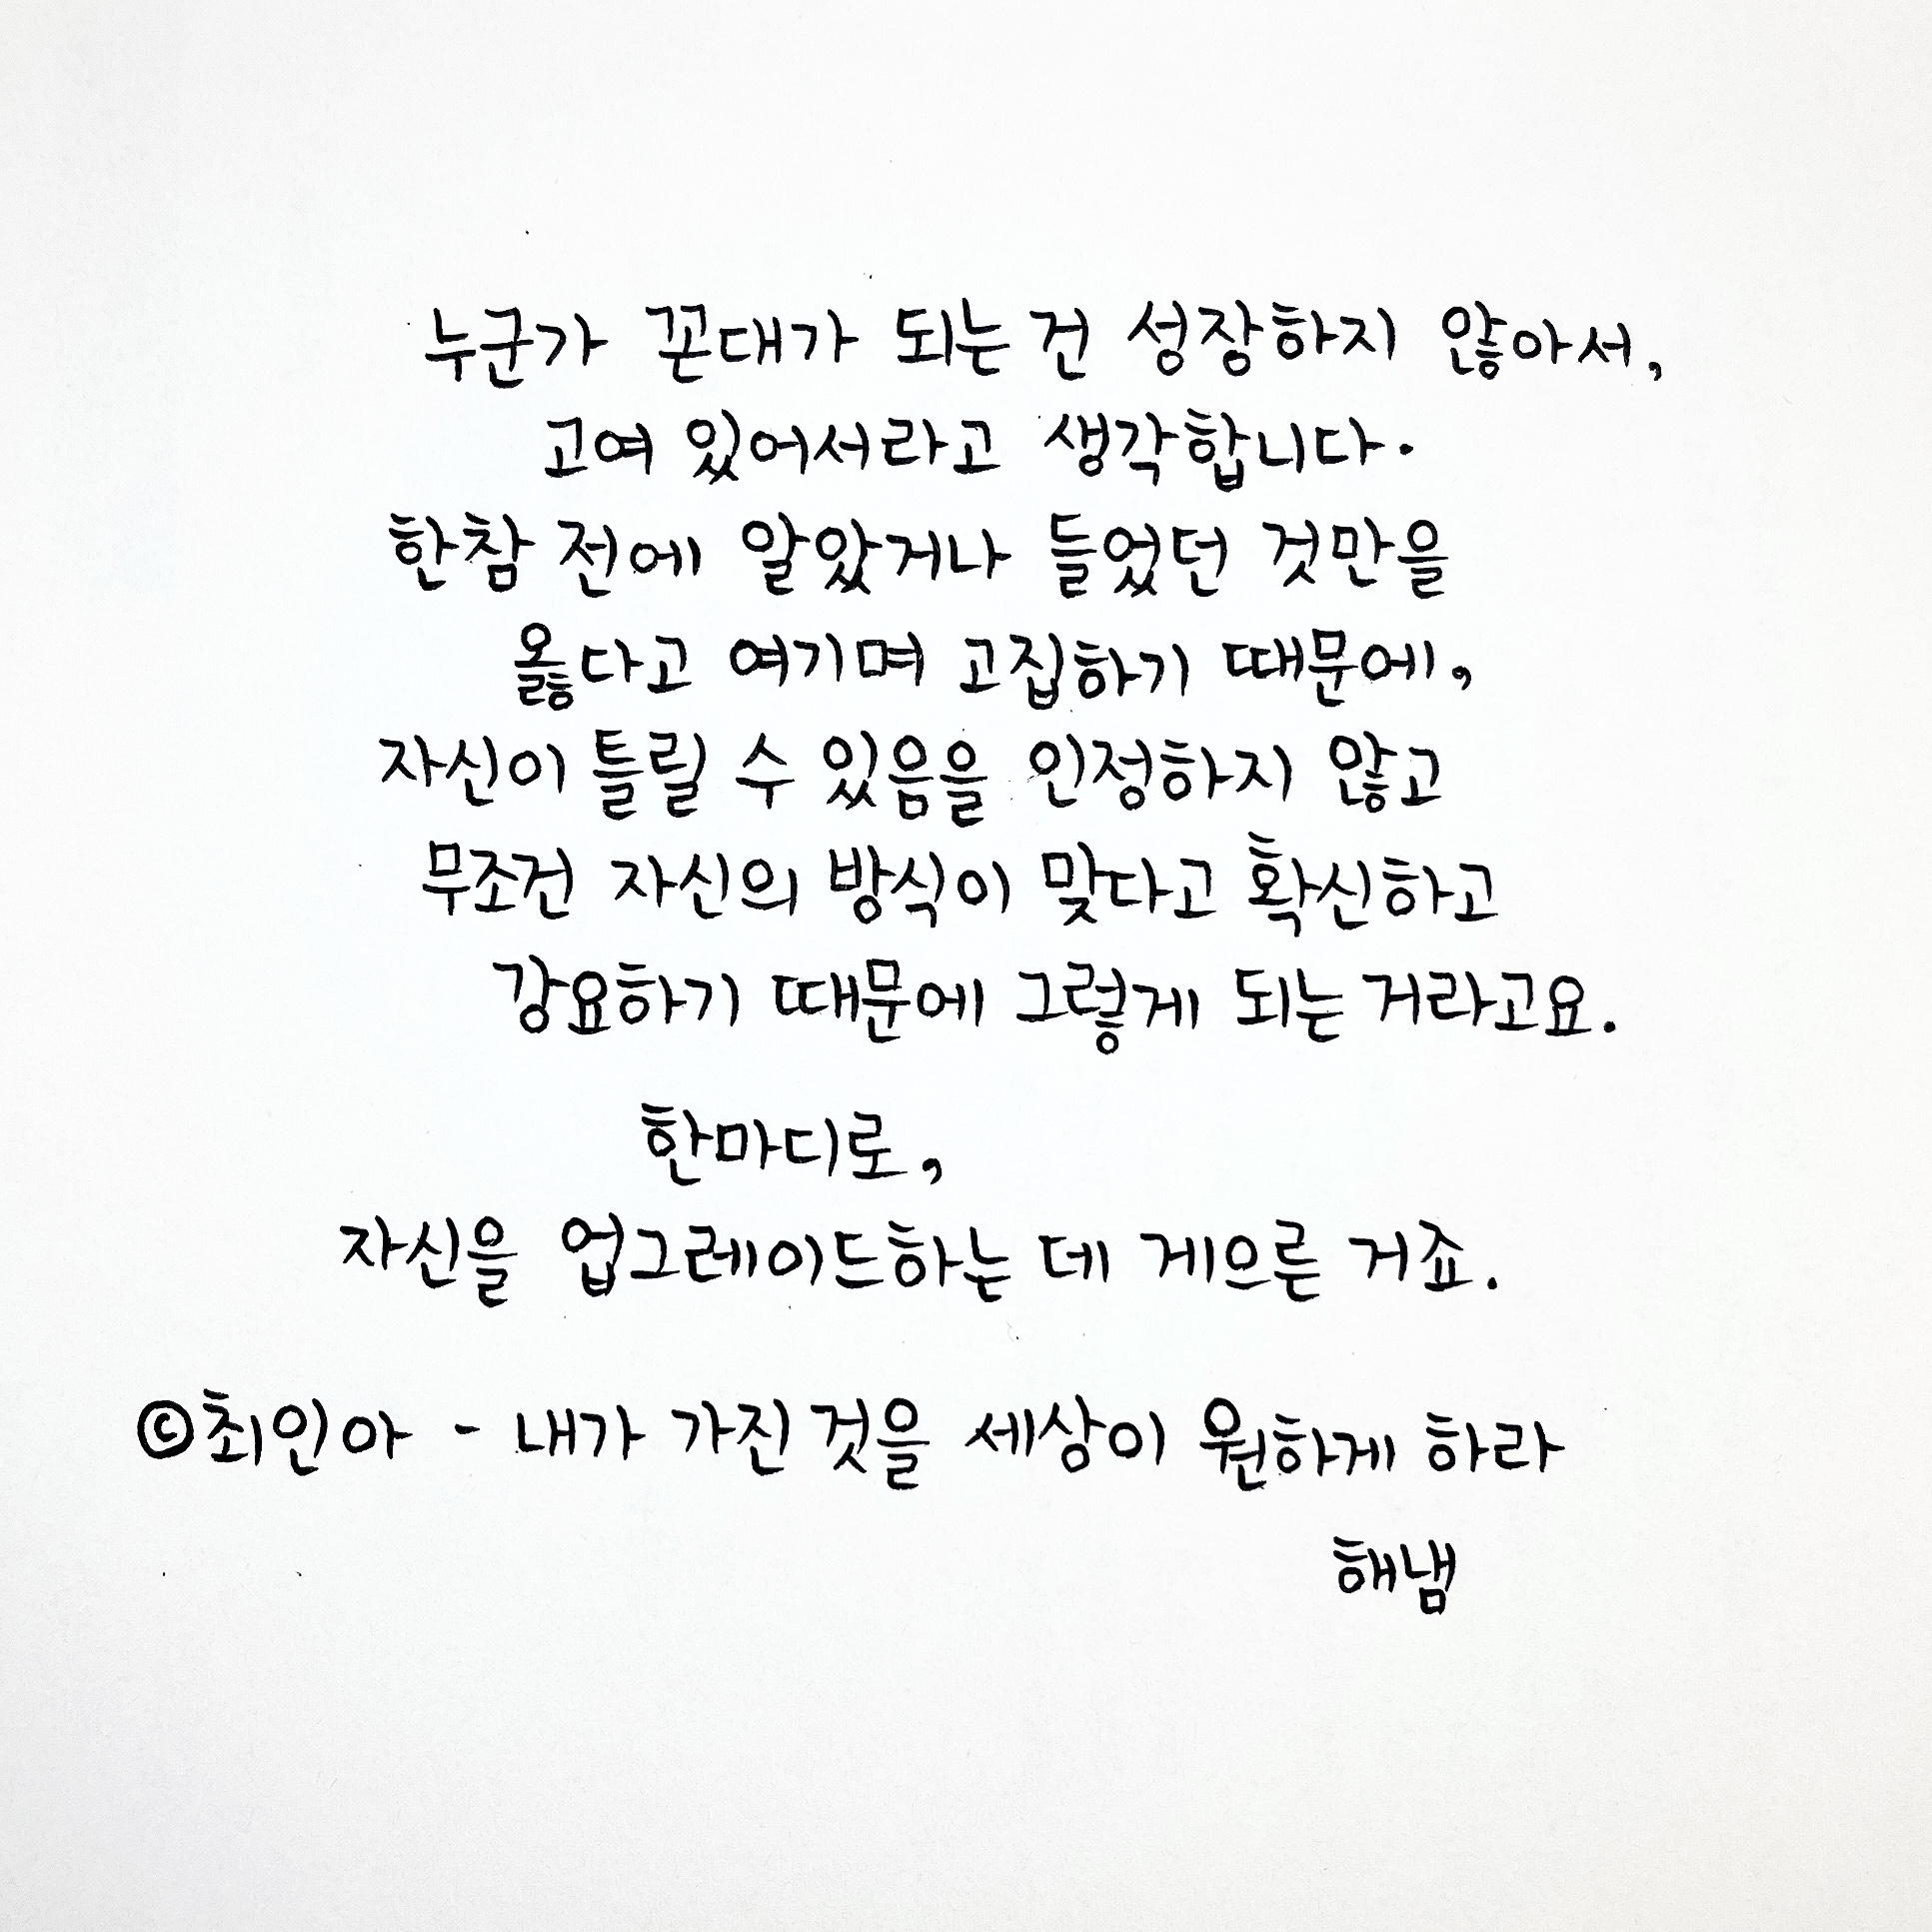 누군가 꼰대가 되는 건 성장하지 않아서,
고여 있어서라고 생각합니다.
한참 전에 알았거나 들었던 것만을
옳다고 여기며 고집하기 때문에,
자신이 틀릴 수 있음을 인정하지 않고
무조건 자신의 방식이 맞다고 확신하고
강요하기 때문에 그렇게 되는 거라고요.
한마디로,
자신을 업그레이드하는 데 게으른 거죠.
©최인아 - 내가 가진 것을 세상이 원하게 하라
해냄